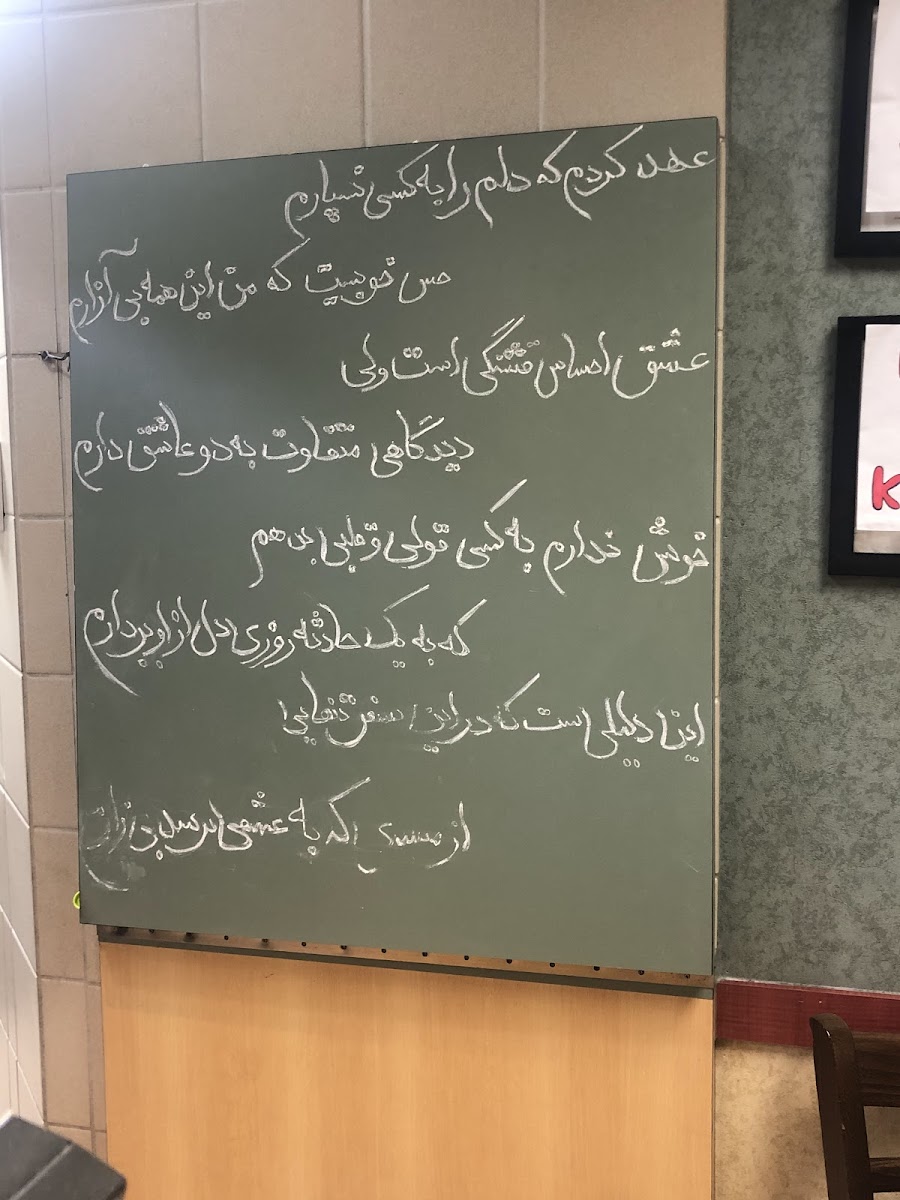 عهد کردم که دلم را به کسی نسپارم
حس خوبیت که من این همه بی آزارم
عشق احساس قشنگی است ولی
دیدگاهی متفاوت به دو عاشق دارم
خوش ندارم به کسی قولی و قلبی بدهم
که به یک حادثه روزی دل از او بردارم
این دلیلی است که در این سفر تنهایی
از مسیری که به عشقی برسد بی زارم
K